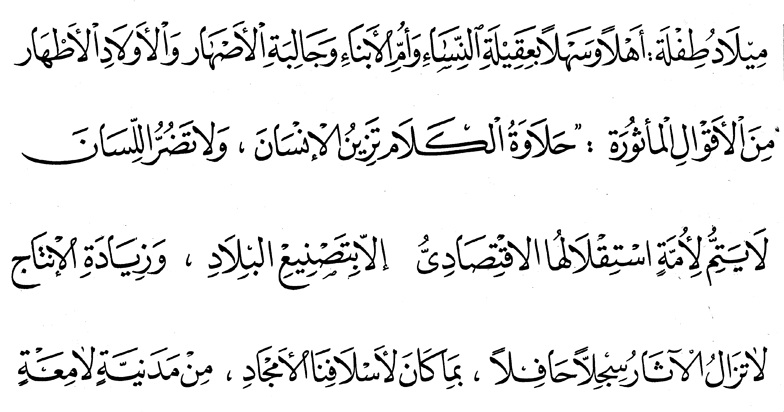 مِيلَادُ طِفْلَة : أَهْلًا وَسَهْلًا بِعَقِيلَةِ النِّسَاءِ وَأُمِّ الْأَبْنَاءِ وَجَالِبَةِ الْأَصْهَارِ وَالْأَوْلَادِ الْأَطْهَارِ
مِنَ الْأَقْوَالِ الْمَأْثُورَةِ : " حَلَاوَةُ الْكَلَامِ تَزِينُ الْإِنْسَانَ ، وَلَا تَضُرُّ اللِّسَانَ
لَا يَتِمُّ لِأُمَّةٍ اسْتِقْلَالُهَا الِاقْتِصَادِىُّ إِلَّا بِتَصْنِيعِ الْبِلَادِ ، وَزِيَادَةِ الْإِنْتَاجِ
لَا تَزَالُ الْآثَارُ سِجِلًّا حَافِلًا ، بِمَا كَانَ لِأَسْلَافِنَا الْأَمْجَادِ ، مِنْ مَدَنِيَّةٍ لَامِعَةٍ